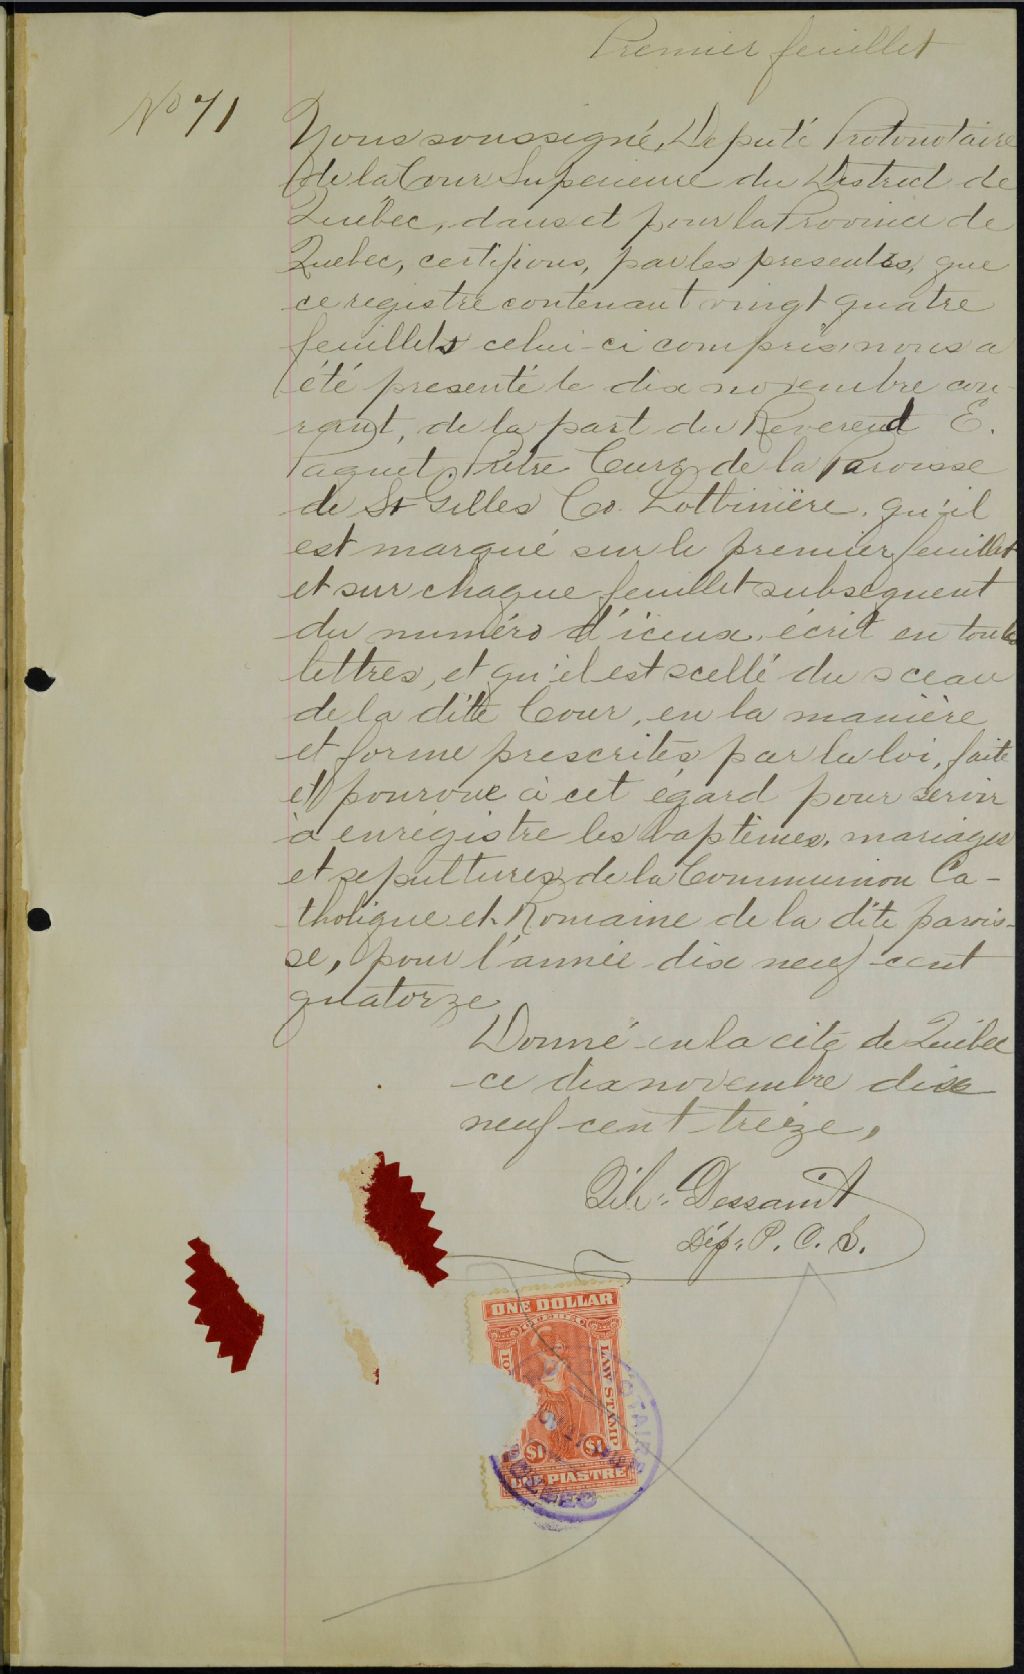 Premier feuillet
No 71
Nous soussigné, Député Protonotaire
de la Cour Superieure du District de
Québec, dans et pour la Province de
Quebec, certifions, par les presentes, que
ce registre contenant vingt quatre
feuillets celui-ci compris nous a
été presenté le dix novembre cou-
rant, de la part du Reverend E.
Paquet Prêtre Curé de la Paroisse
de St Gilles Co. Lotbinière, qu'il
est marqué sur le premier feuillet
et sur chaque feuillet subsequent
du numéro d'iceux, écrit en toutes
lettres, et qu'il est scellé du sceau
de la dite Cour, en la manière
et forme prescrites par la loi, faite
et pourvue à cet égard pour servir
à enrégistre les baptêmes, mariages
et sepultures de la Communion Ca-
tholique et Romaine de la dite parois-
se, pour l'année dix neuf cent
quatorze
Donné en la cité de Québec
ce dix novembre dix
neuf cent treize,
Dessaint
Dép. P. C. S.
ONE DOLLAR
QUEBEC
LAW STAMP
$1 $1
UNE PIASTRE
QUEBEC